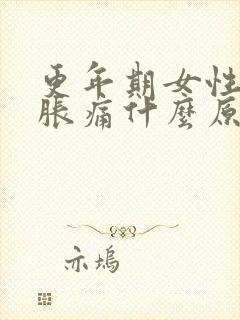 更年期女性
脹痛什麼原
亦塢